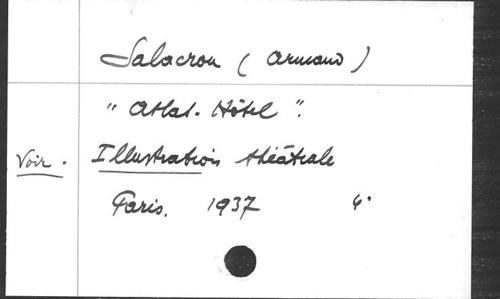 Salacrou ( Armand )
" Atlas. Hôtel ".
Voir. Illustration théâtrale
Paris. 1937 4°